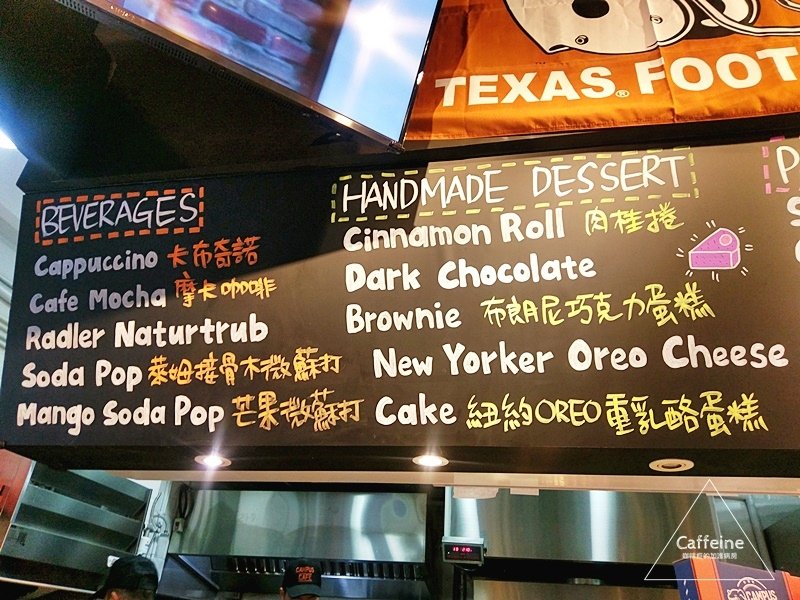 TEXAS® FOOT
BEVERAGES
Cappuccino 卡布奇諾
Cafe Mocha 摩卡咖啡
Radler Naturtrub
Soda Pop 萊姆接骨木微蘇打
Mango Soda Pop 芒果微蘇打
HANDMADE DESSERT
Cinnamon Roll 肉桂捲
Dark Chocolate
Brownie 布朗尼巧克力蛋糕
New Yorker Oreo Cheese
Cake 紐約OREO重乳酪蛋糕
P
S
CAMPUS
CAFE
Caffeine
CAMPUS